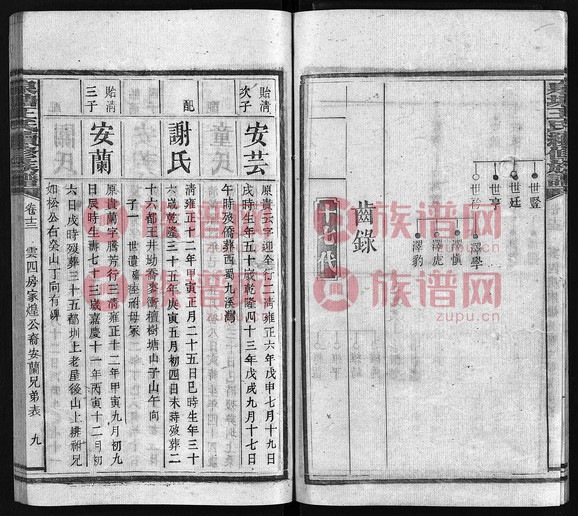 世豎
世廷
世亨
世仁
澤學
澤慎
澤虎
澤豹
齒錄
十七代
貽清次子
安芸
原貴云字迎全行二清雍正六年戊申七月十九日
戌時生年五十歲乾隆四十三年戊戌九月十七日
午時歿僑葬西蜀九溪灣
配
謝氏
清雍正十二年甲寅正月二十五日巳時生年三十
六歲乾隆三十五年庚寅五月初四日未時歿葬二
十六都王井坳喬葉衝檀樹塘山子山午向
子一 世遺葬桔祔母冢
貽清三子
安蘭
原貴蘭字騰芳行三清雍正十二年甲寅九月初九
日辰時生壽七十三歲嘉慶十一年丙寅十二月初
六日戌時歿葬三十五都圳上老星後山上耕祔兄
如松公右癸山丁向有碑
卷十二
雲四房家煌公裔安蘭兄弟表
九
族谱网
zupu.cn